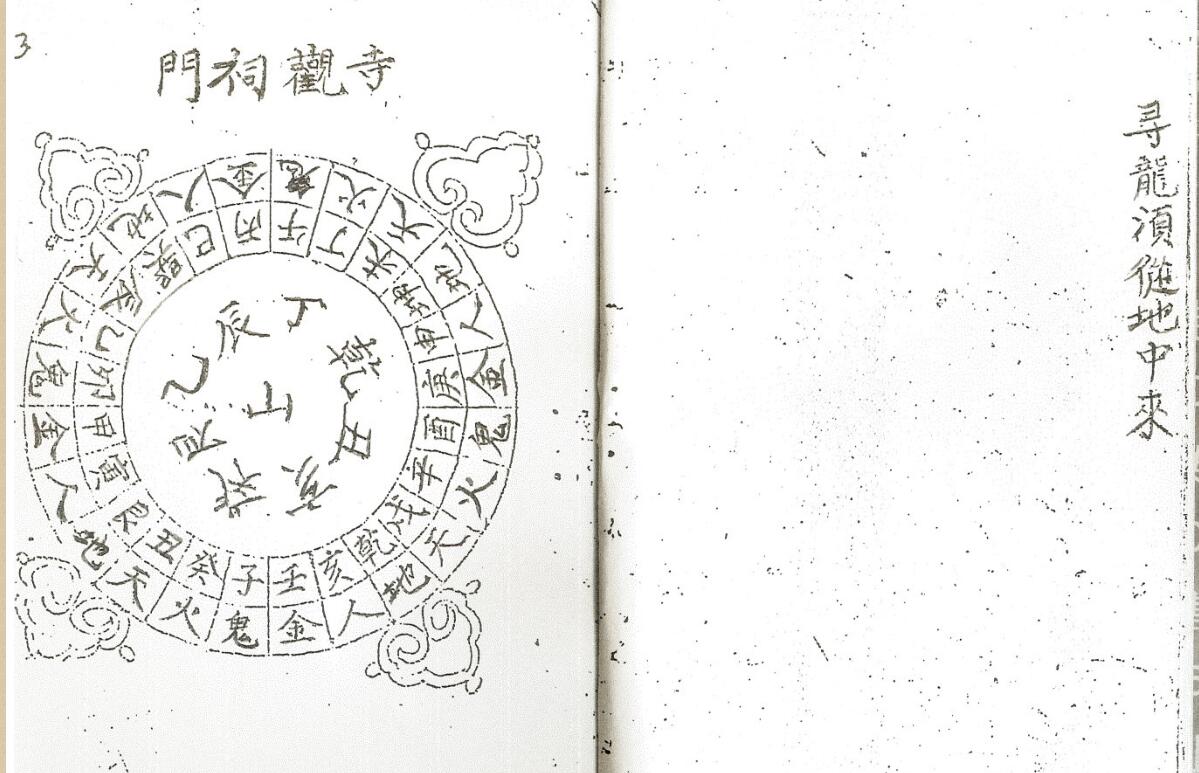 尋龍湏從地中來
3
寺觀祠門
鬼火天地人金鬼火天地人金鬼火天地人金鬼火天地人金
午丁未坤申庚酉辛戌乾亥壬子癸丑艮寅甲卯乙辰巽巳丙
丁乾丑亥辰乙
山